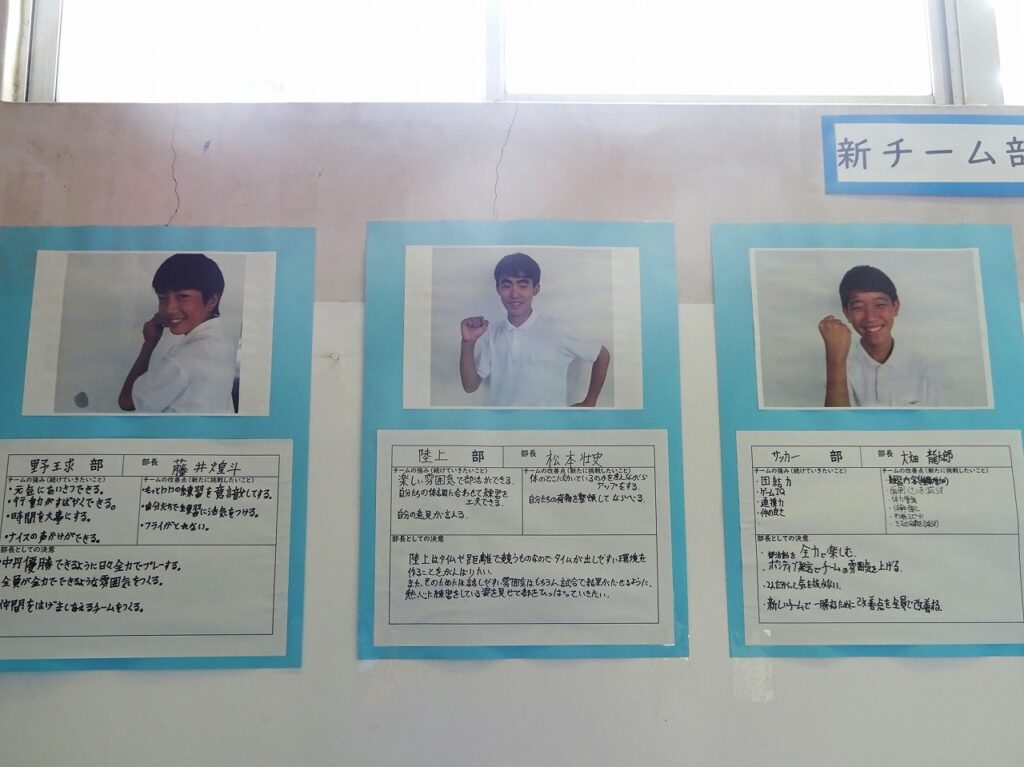 新チーム部
野球 部
部長 藤井煌斗
チームの強み(続けていきたいこと)
・元気にあいさつできる。
・行動がすばやくできる。
・時間を大事にする。
・ナイスの声かけができる。
チームの改善点(新たに挑戦したいこと)
・自分たちで練習に活気をつける。
・フライがとれない。
部長としての決意
中丹優勝できるように日々全力でプレーする。
全員が全力でできるような雰囲気をつくる。
仲間をはげましあえるチームをつくる。
陸上 部
部長 松本壮史
チームの強み(続けていきたいこと)
楽しい雰囲気で部活ができる。
自分たちの体調に合わせて練習を
工夫できる。
自分の意見が言える。
チームの改善点(新たに挑戦したいこと)
体のどこに効いているのかを考えながら
アップをする。
自分たちの荷物を整頓してならべる。
部長としての決意
陸上はタイムや距離で競うものなのでタイムが出しやすい環境を
作ることをがんばりたい。
また、そのためには話しやすい雰囲気はもちろん、試合で結果がだせるように、
熱心に練習をしている姿を見せて部をひっぱっていきたい。
サッカー 部
部長 大畑
チームの強み(続けていきたいこと)
・団結力
・ゲームIQ
・連携力
・仲の良さ
チームの改善点(新たに挑戦したいこと)
部長としての決意
・部活動を全力で楽しむ。
・ポジティブ発言でチームの雰囲気を上げる。
・新しいチームで一勝するために改善点を全員で改善する。